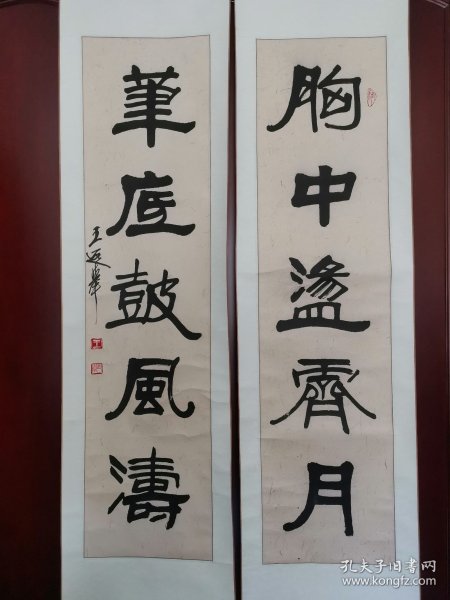 胸中盪霽月
筆底鼓風濤
王
孔夫子旧书网
www.kongfz.com